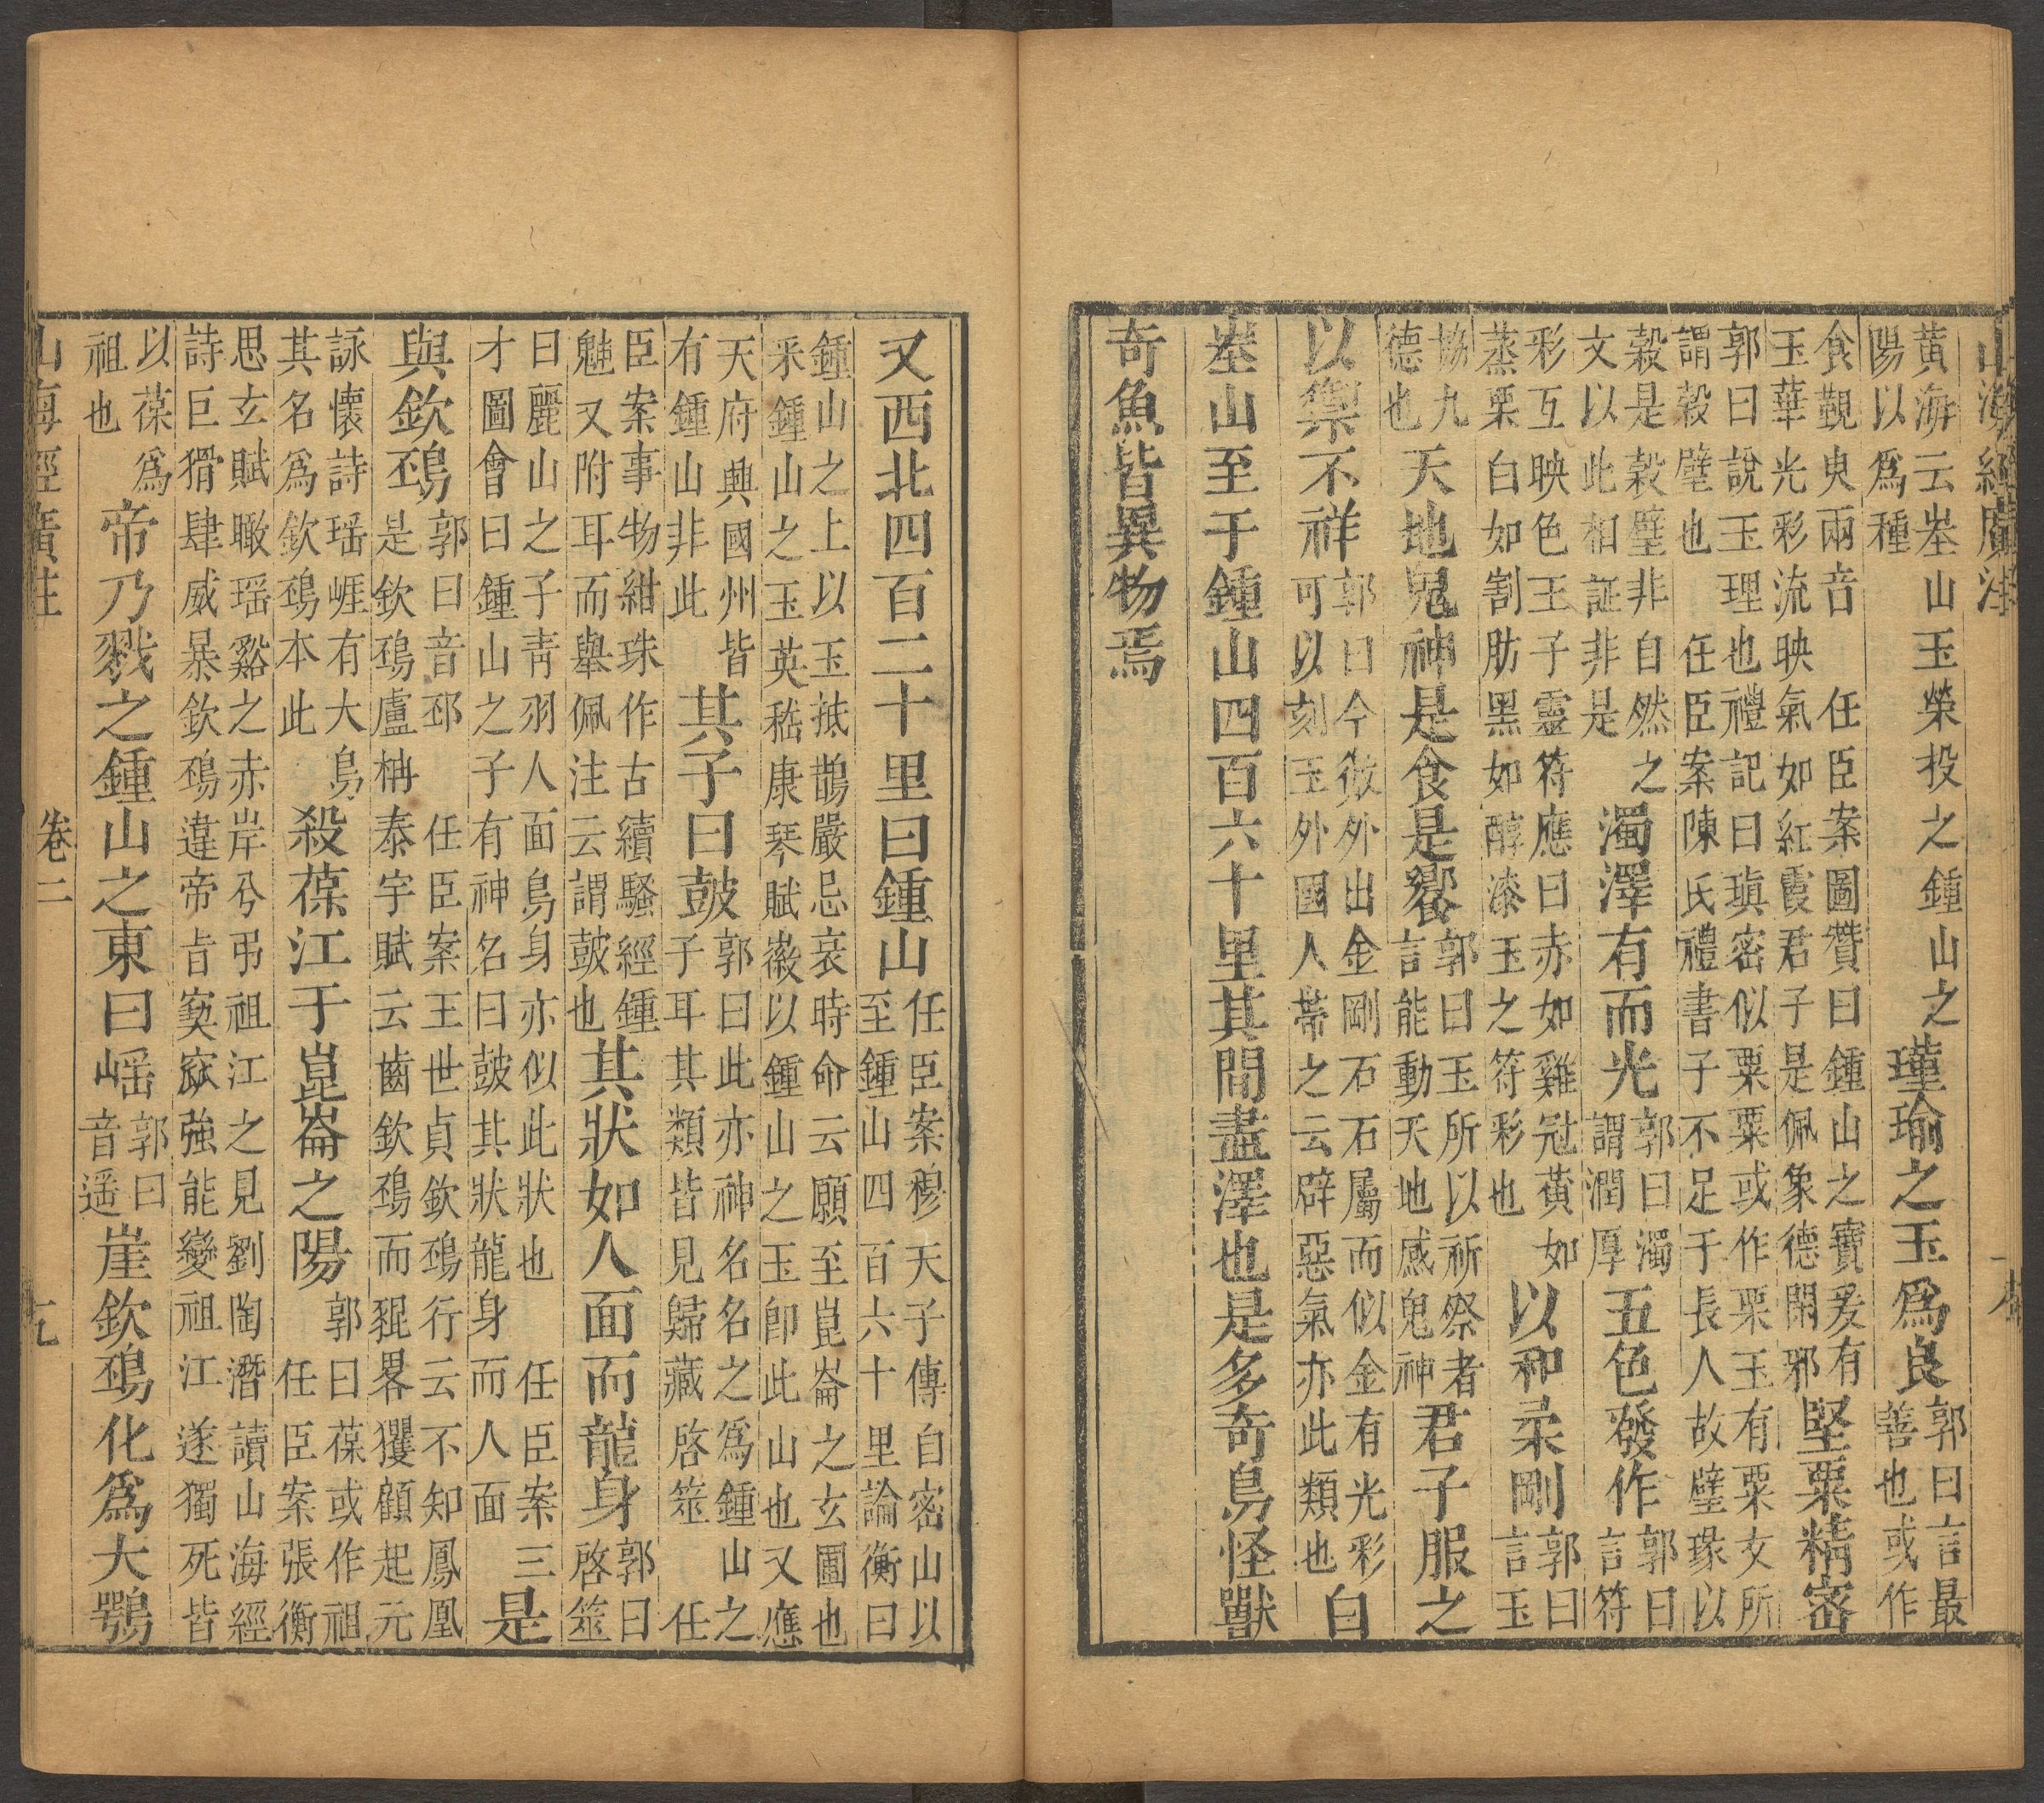 山海經廣注
黃海云峚山玉榮投之鍾山之陽以爲種瑾瑜之玉爲良郭曰言最善也或作
食觀臾兩音任臣案圖贊曰鍾山之寶爰有玉華光彩流映氣如紅霞君子是佩象德閑邪堅粟精密
郭曰說玉理也禮記曰瑱密似粟粟或作栗玉有粟文所謂穀璧也任臣案陳氏禮書子不足于長人故璧瑑以
穀是穀璧非自然之文以此相証非是濁澤有而光郭曰濁謂潤厚五色發作郭曰言符
彩互映色王子靈符應曰赤如雞冠黃如蒸栗白如割肪黑如醇漆玉之符彩也以和柔剛郭曰言玉
協九德也天地鬼神是食是饗郭曰玉所以祈祭者言能動天地感鬼神君子服之
以禦不祥郭曰今徼外出金剛石石屬而似金有光彩可以刻玉外國人帶之云辟惡氣亦此類也自
峚山至于鍾山四百六十里其間盡澤也是多奇鳥怪獸
奇魚皆異物焉
又西北四百二十里曰鍾山任臣案穆天子傳自密山以至鍾山四百六十里論衡曰
鍾山之上以玉抵鵲嚴忌哀時命云願至崑崙之玄圃也采鍾山之玉英嵇康琴賦徽以鍾山之玉卽此山也又應
天府興國州皆有鍾山非此其子曰鼓郭曰此亦神名名之爲鍾山之子耳其類皆見歸藏啓筮任
臣案事物紺珠作古續騷經鍾魅又附耳而舉佩注云謂鼓也其狀如人面而龍身郭曰啓筮
曰麗山之子青羽人面鳥身亦似此狀也任臣案三才圖會曰鍾山之子有神名曰鼓其狀龍身而人面是
與欽䲹郭曰音邳是欽䲹盧柟泰宇賦云齒欽䲹而䝟畧玃顧起元任臣案王世貞欽䲹行云不知鳳凰
詠懷詩瑶崕有大鳥其名爲欽䲹本此殺葆江于崑崙之陽郭曰葆或作祖任臣案張衡
思玄賦瞰瑶谿之赤岸兮弔祖江之見劉陶潛讀山海經詩巨猾肆威暴欽䲹違帝旨窫窳強能變祖江遂獨死皆
以葆爲祖也帝乃戮之鍾山之東曰㟙郭曰音遥崖欽䲹化爲大鶚
山海經廣注
卷二